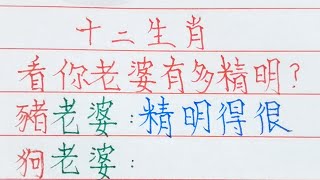 十二生肖
看你老婆有多精明?
豬老婆:精明得很
狗老婆: